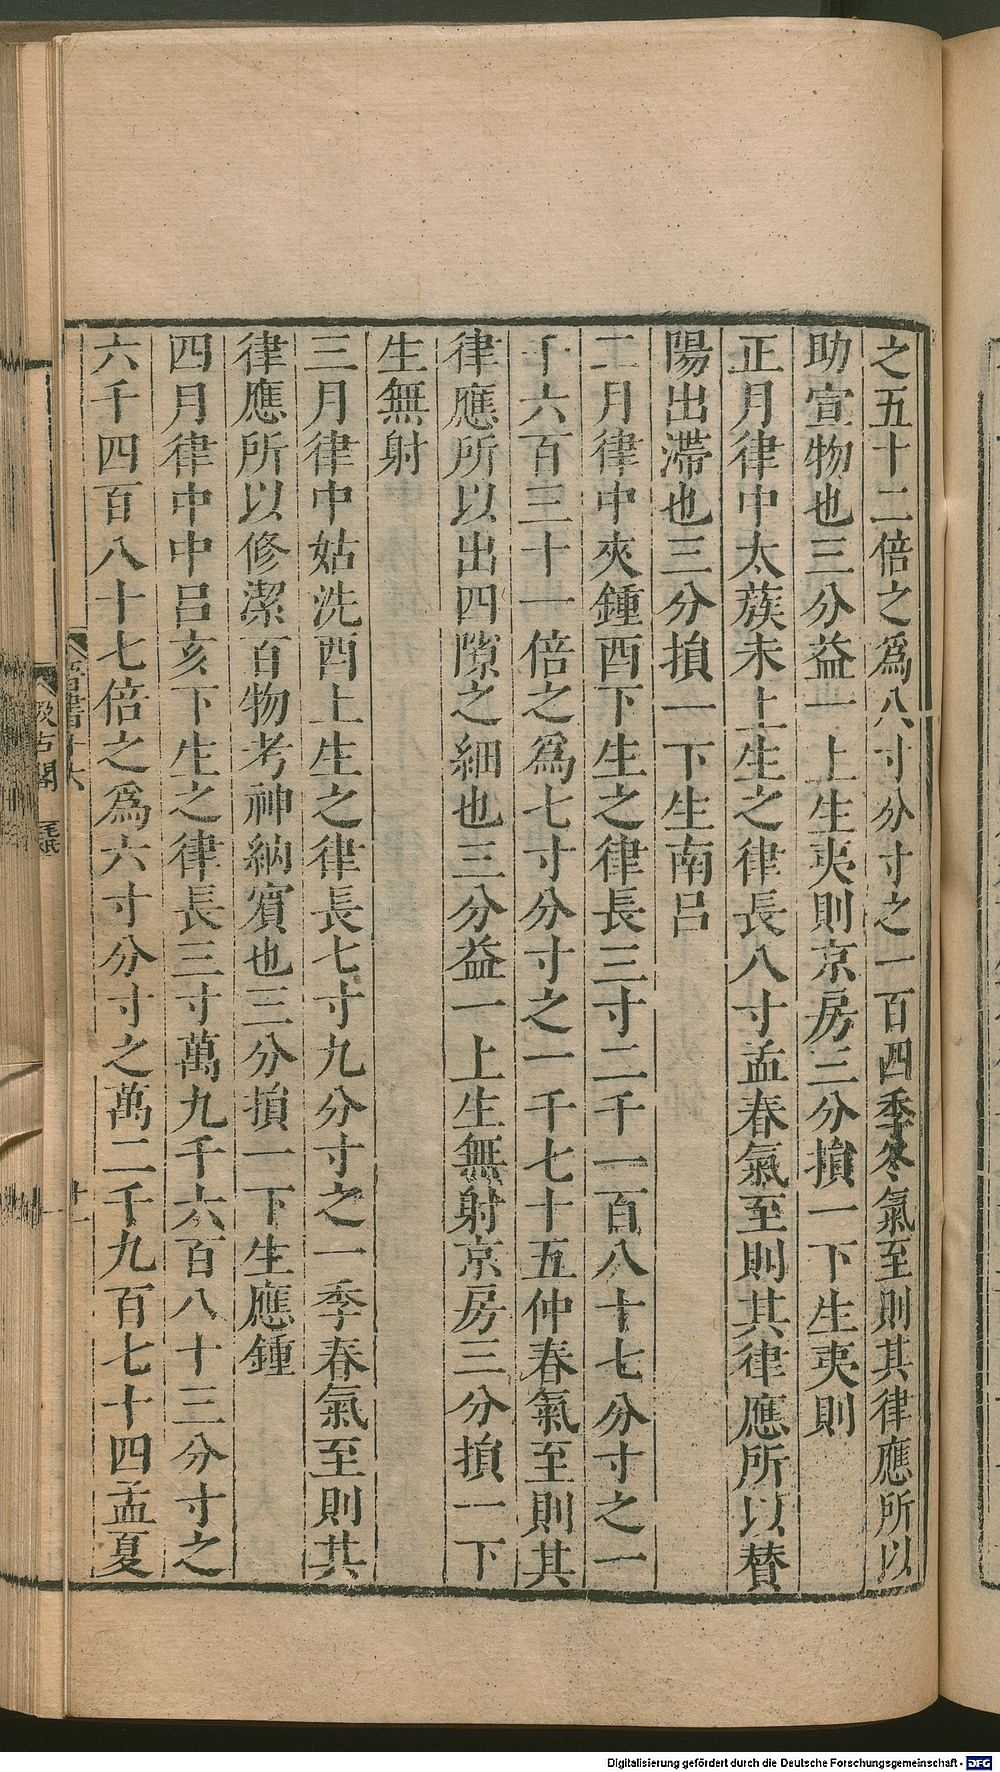 之五十二倍之爲八寸分寸之一百四季冬氣至則其律應所以
助宣物也三分益一上生夷則京房三分損一下生夷則
正月律中太蔟未上生之律長八寸孟春氣至則其律應所以贊
陽出滯也三分損一下生南呂
二月律中夾鍾酉下生之律長三寸二千一百八十七分寸之一
千六百三十一倍之爲七寸分寸之一千七十五仲春氣至則其
律應所以出四隙之細也三分益一上生無射京房三分損一下
生無射
三月律中姑洗酉上生之律長七寸九分寸之一季春氣至則其
律應所以修潔百物考神納賓也三分損一下生應鍾
四月律中中呂亥下生之律長三寸萬九千六百八十三分寸之
六千四百八十七倍之爲六寸分寸之萬二千九百七十四孟夏
晉書十六
十一
汲古閣
毛氏
Digitalisierung gefördert durch die Deutsche Forschungsgemeinschaft - DFG